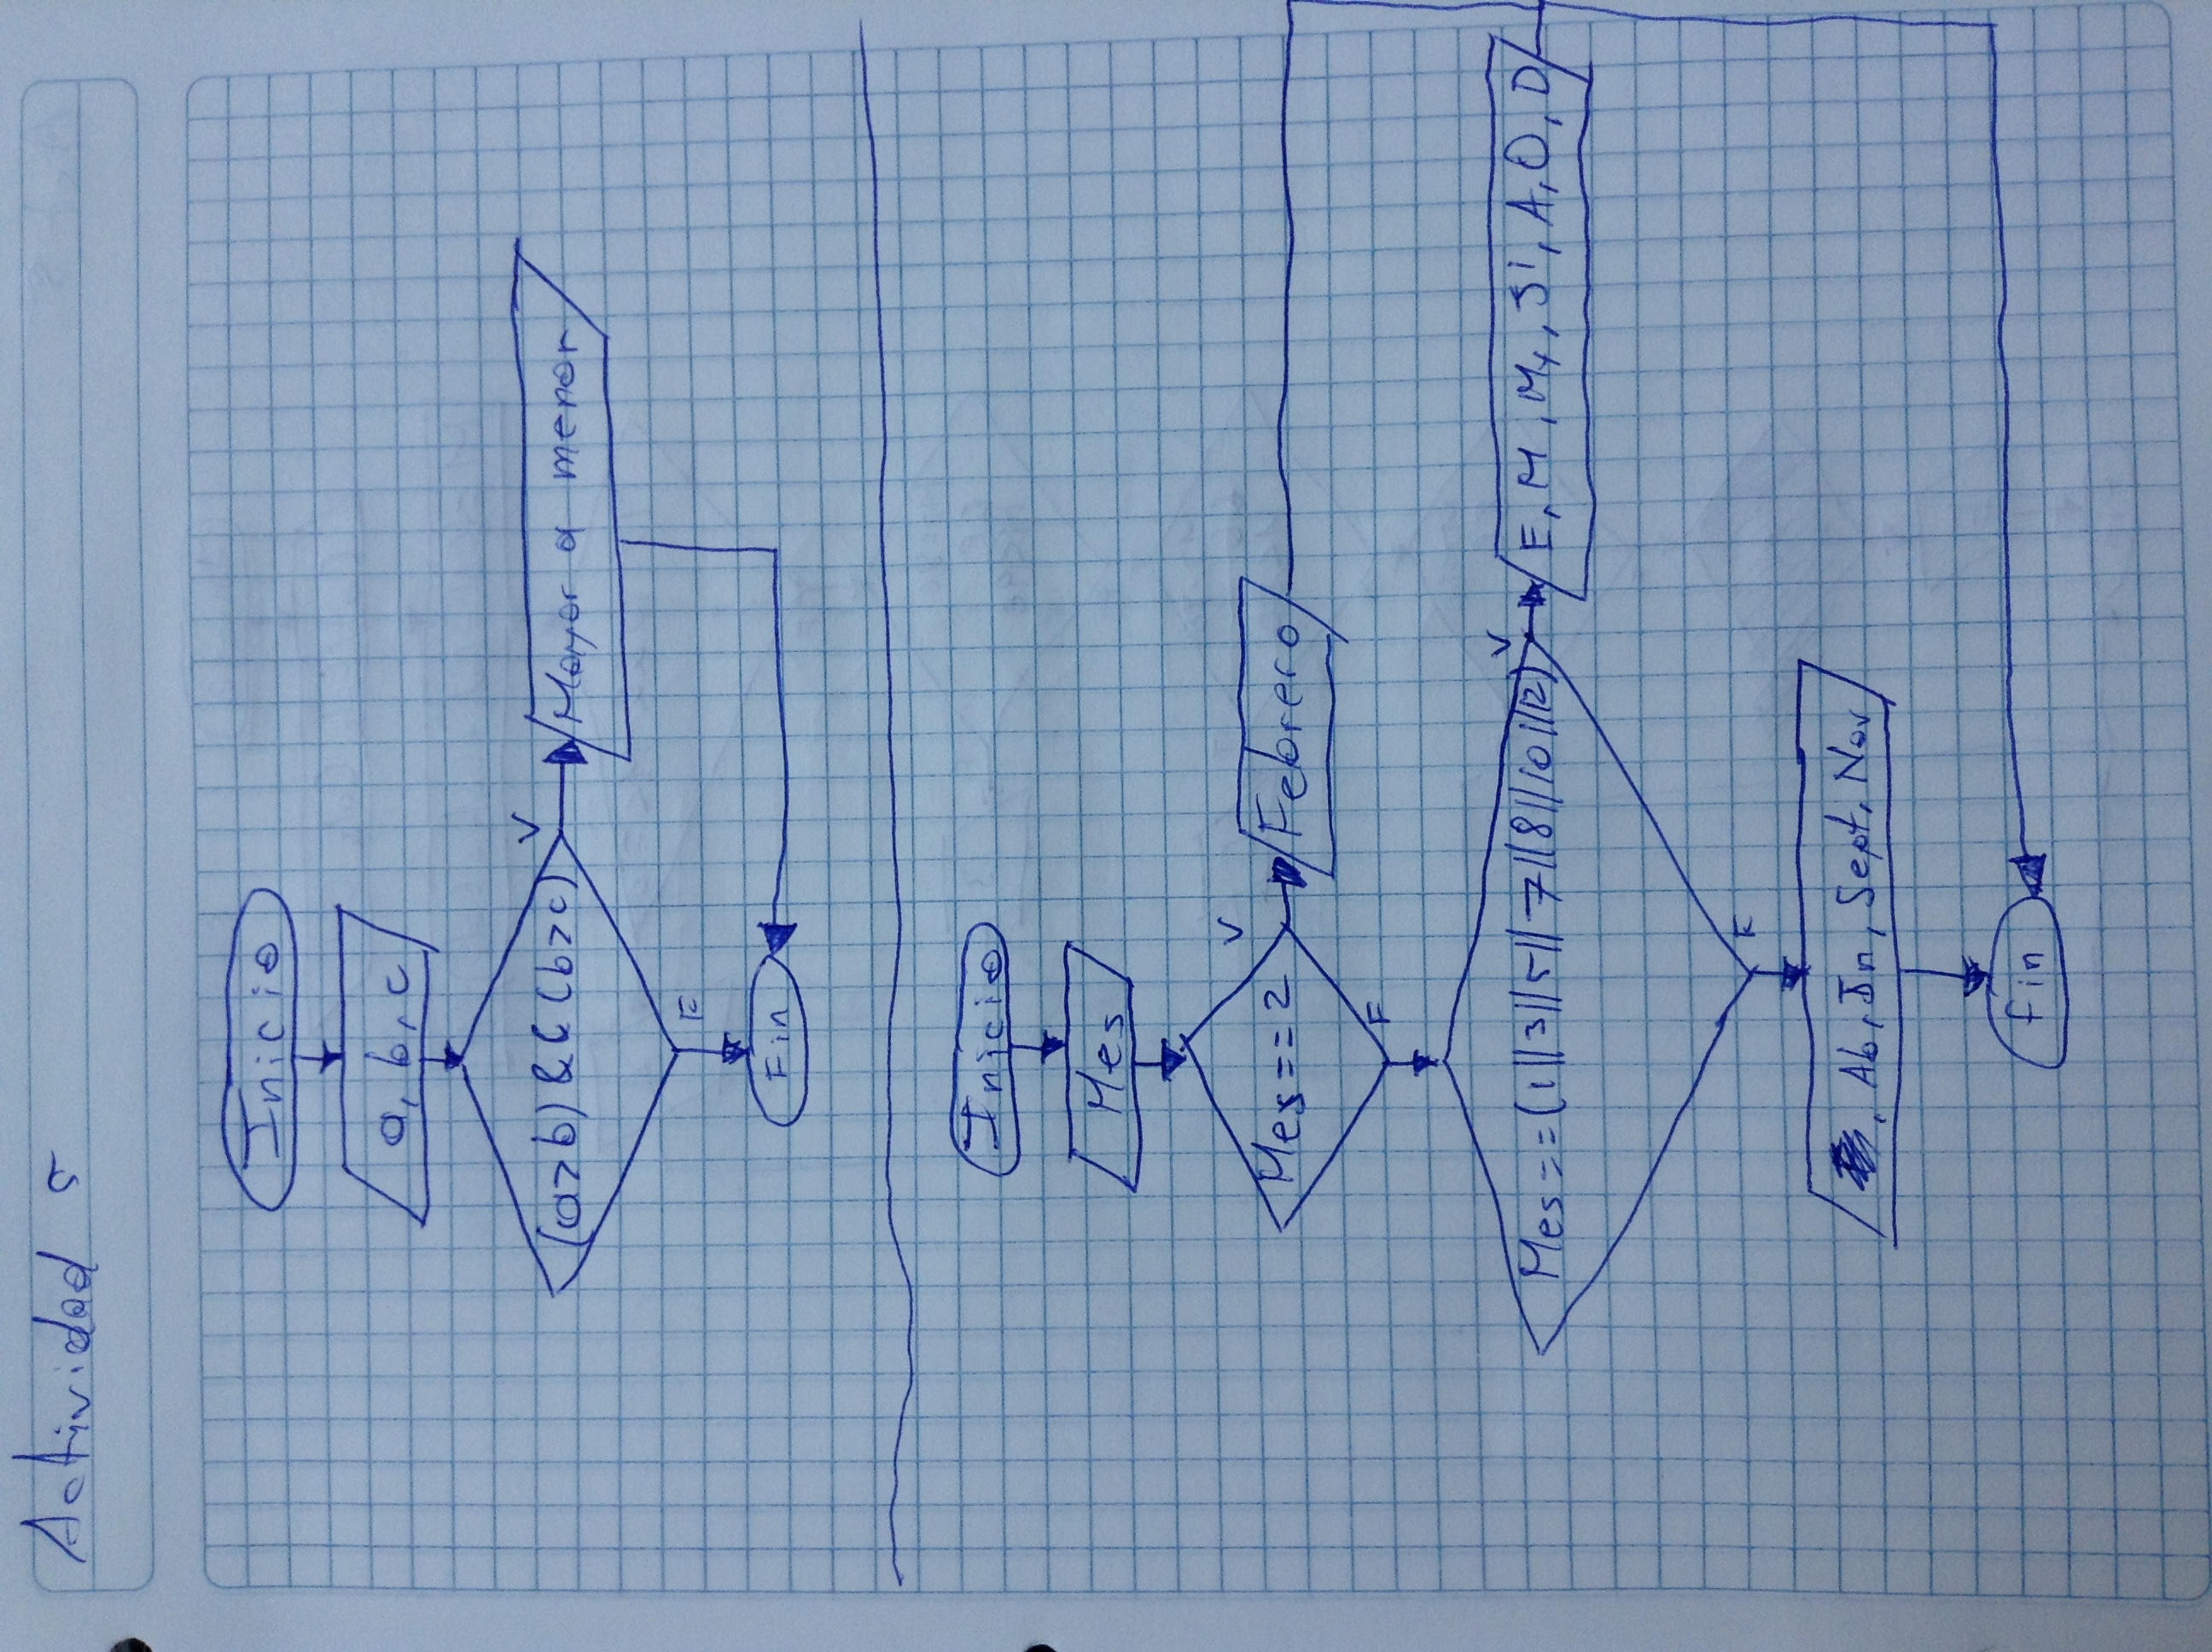 Actividad 5
Inicio
a, b, c
(a>b) && (b>c)
V
Mayor a menor
F
Fin
Inicio
Mes
Mes==2
V
Febrero
F
Mes==(1||3||5||7||8||10||12)
V
E, M, My, Jl, A, O, D
F
, Ab, Jn, Sept, Nov
Fin